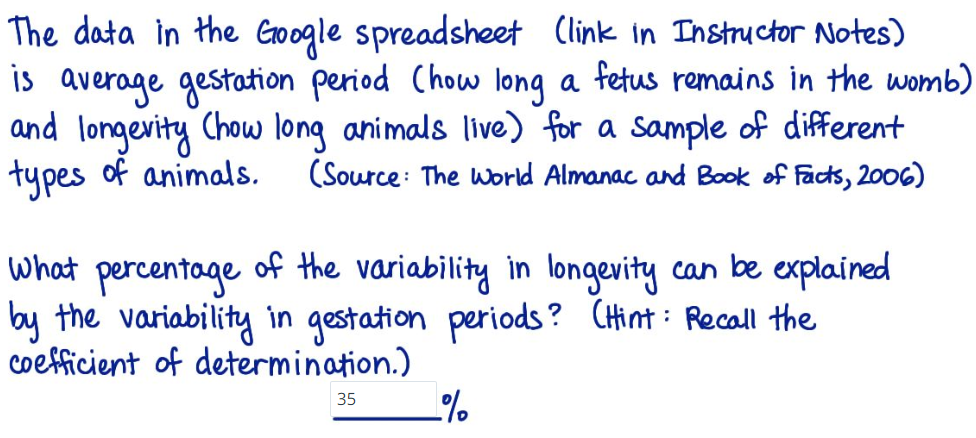 The data in the Google spreadsheet (link in Instructor Notes)
is average gestation period (how long a fetus remains in the womb)
and longevity (how long animals live) for a sample of different
types of animals. (Source: The World Almanac and Book of Facts, 2006)
What percentage of the variability in longevity can be explained
by the variability in gestation periods? (Hint: Recall the
coefficient of determination.)
35 %